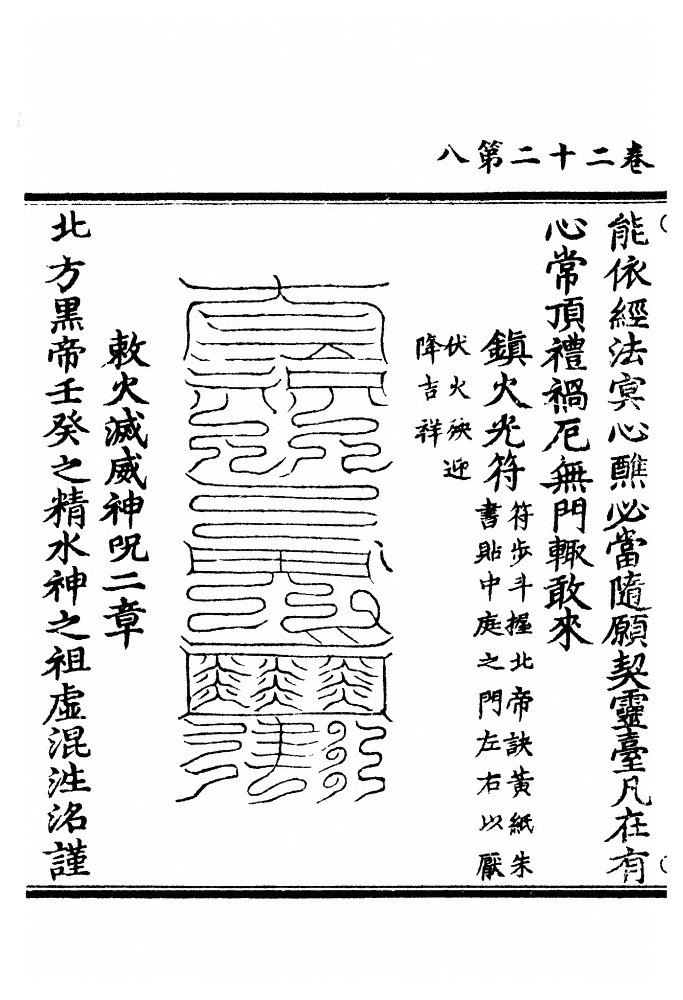 卷二十二第八
能依經法㝠心醮必當隨願契靈臺凡在有
心常頂禮禍厄無門輙敢來
鎮火光符
符步斗握北帝訣黃紙朱
書貼中庭之門左右以厭
伏火殃迎
降吉祥
敕火滅威神呪二章
北方黑帝壬癸之精水神之祖虛混泩洺謹